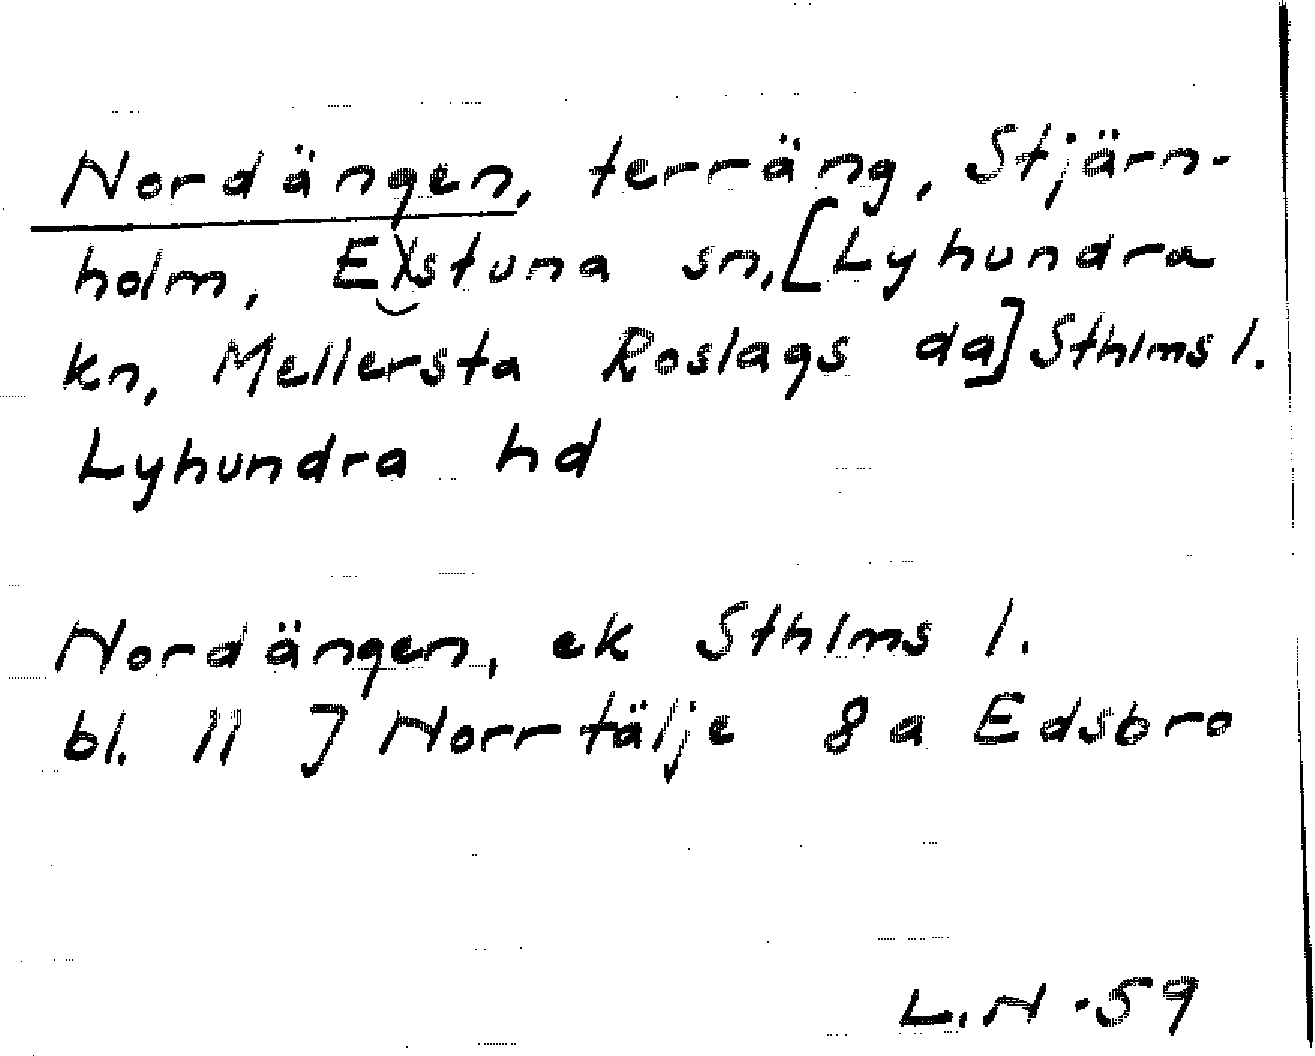 Nordängen, terräng, Stjärn-
holm, Estuna sn, [Lyhundra
kn, Mellersta Roslags dg] Sthlms l.
Lyhundra hd
Nordängen, ek Sthlms l.
bl. 11 J Norrtälje 8a Edsbro
L.N. 59